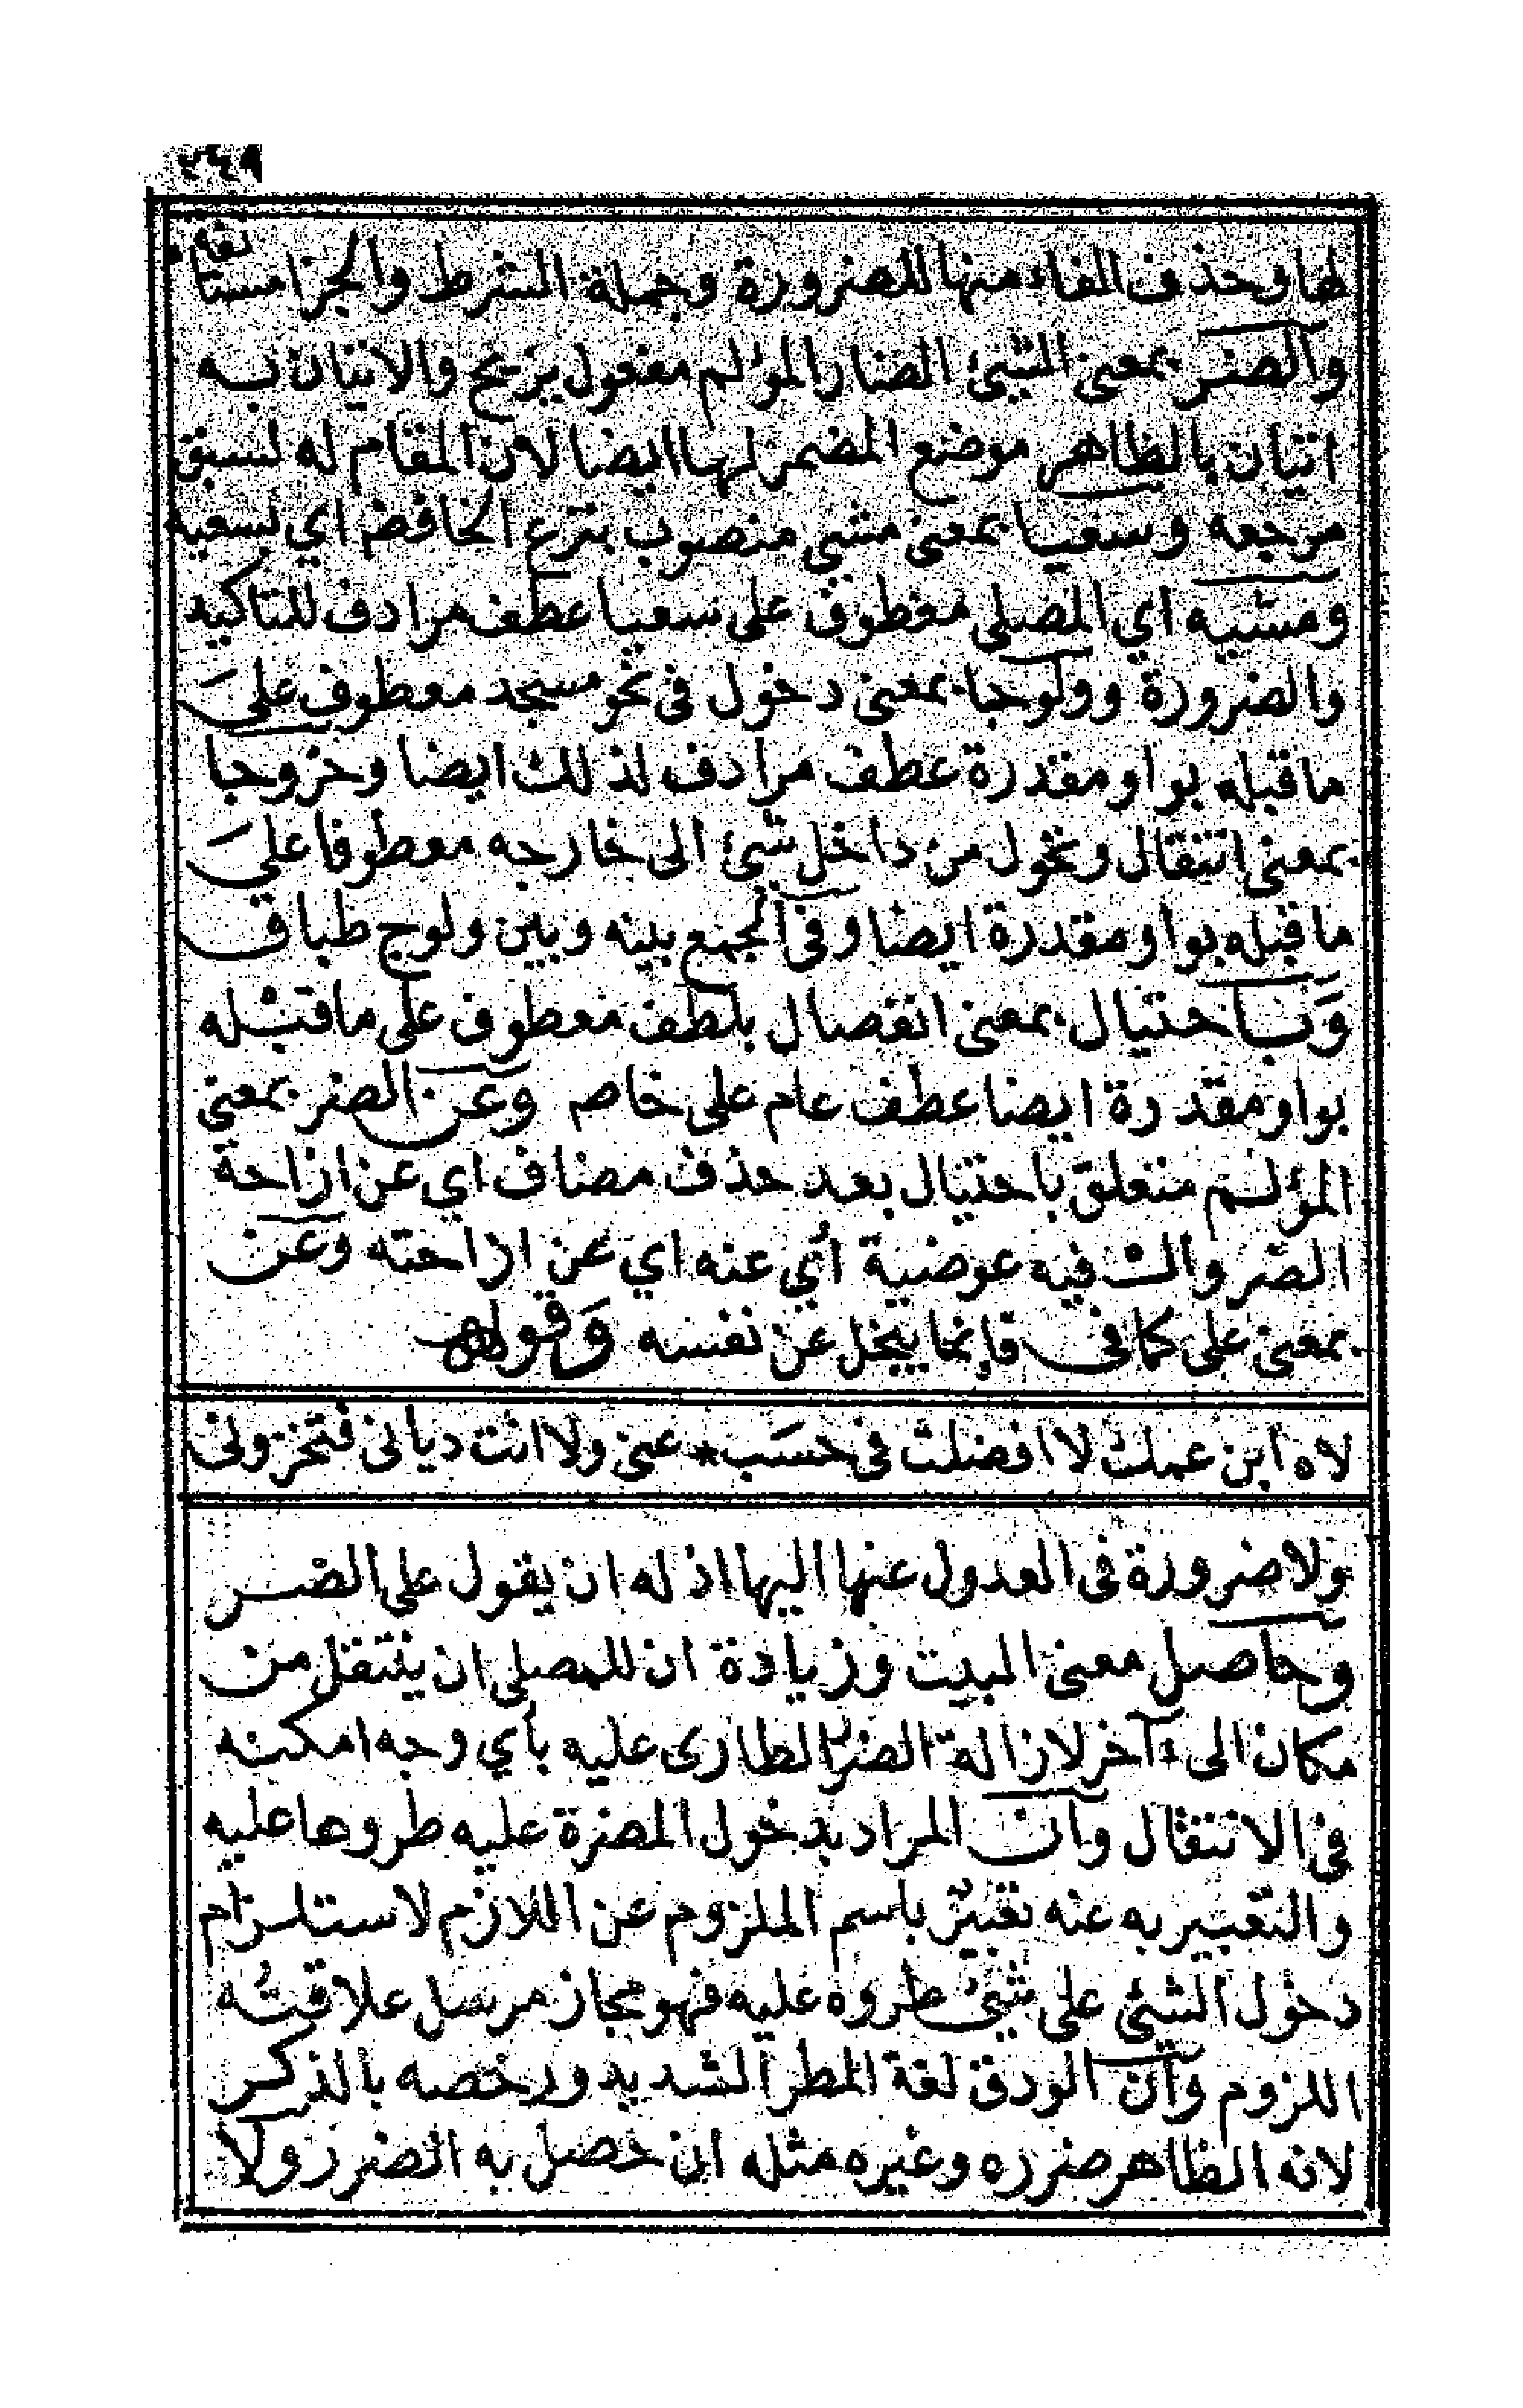 ٢٤٩
لها وحذف الفاء منها للضرورة وجملة الشرط والجزا مستا نفة
والضر بمعنى الشيئ الضار المؤلم مفعول يزيح والاتيان به
اتيان بالظاهر موضع المضمر لها ايضا لان المقام له لسبق
مرجعه وسعيا بمعنى مشي منصوب بنزع الخافض اي بسعيه
ومشيه اي المصلى معطوف على سعيا عطف مرادف للتاكيه
والضرورة وولوجا بمعنى دخول فى نحو مسجد معطوف على
ما قبله بواو مقدرة عطف مرادف لذلك ايضا وخروجا
بمعنى انتقال وتحول من داخل شئ الى خارجه معطوفا على
ما قبله بواو مقدرة ايضا وفى الجمع بينه وبين ولوج طباق
وباحتيال بمعنى انفصال بلطف معطوف على ما قبله
بواو مقدرة ايضا عطف عام على خاص وعن الضر بمعنى
المؤلم متعلق باحتيال بعد حذف مضاف اي عن ازاحة
الضر وال فيه عوضية أي عنه اي عن ازاحته وعن
بمعنى على كما فى فإنما يبخل عن نفسه وقوله
لاه ابن عمك لا افضلت فى حسب * عنى ولا انت ديانى فتخزونى
ولا ضرورة فى العدول عنها اليها اذ له ان يقول على الضر
وحاصل معنى البيت وزيادة ان للمصلى ان ينتقل من
مكان الى ءآخر لازالة الضر الطارى عليه بأي وجه امكنه
فى الانتقال وان المراد بدخول المضرة عليه طروها عليه
والتعبير به عنه تعبير باسم الملزوم عن اللازم لاستلزام
دخول الشيئ على شيئ طروه عليه فهو مجاز مرسل علاقته
اللزوم وان الودق لغة المطر الشديد وخصه بالذكر
لانه الظاهر ضرره وغيره مثله ان حصل به الضرر ولا